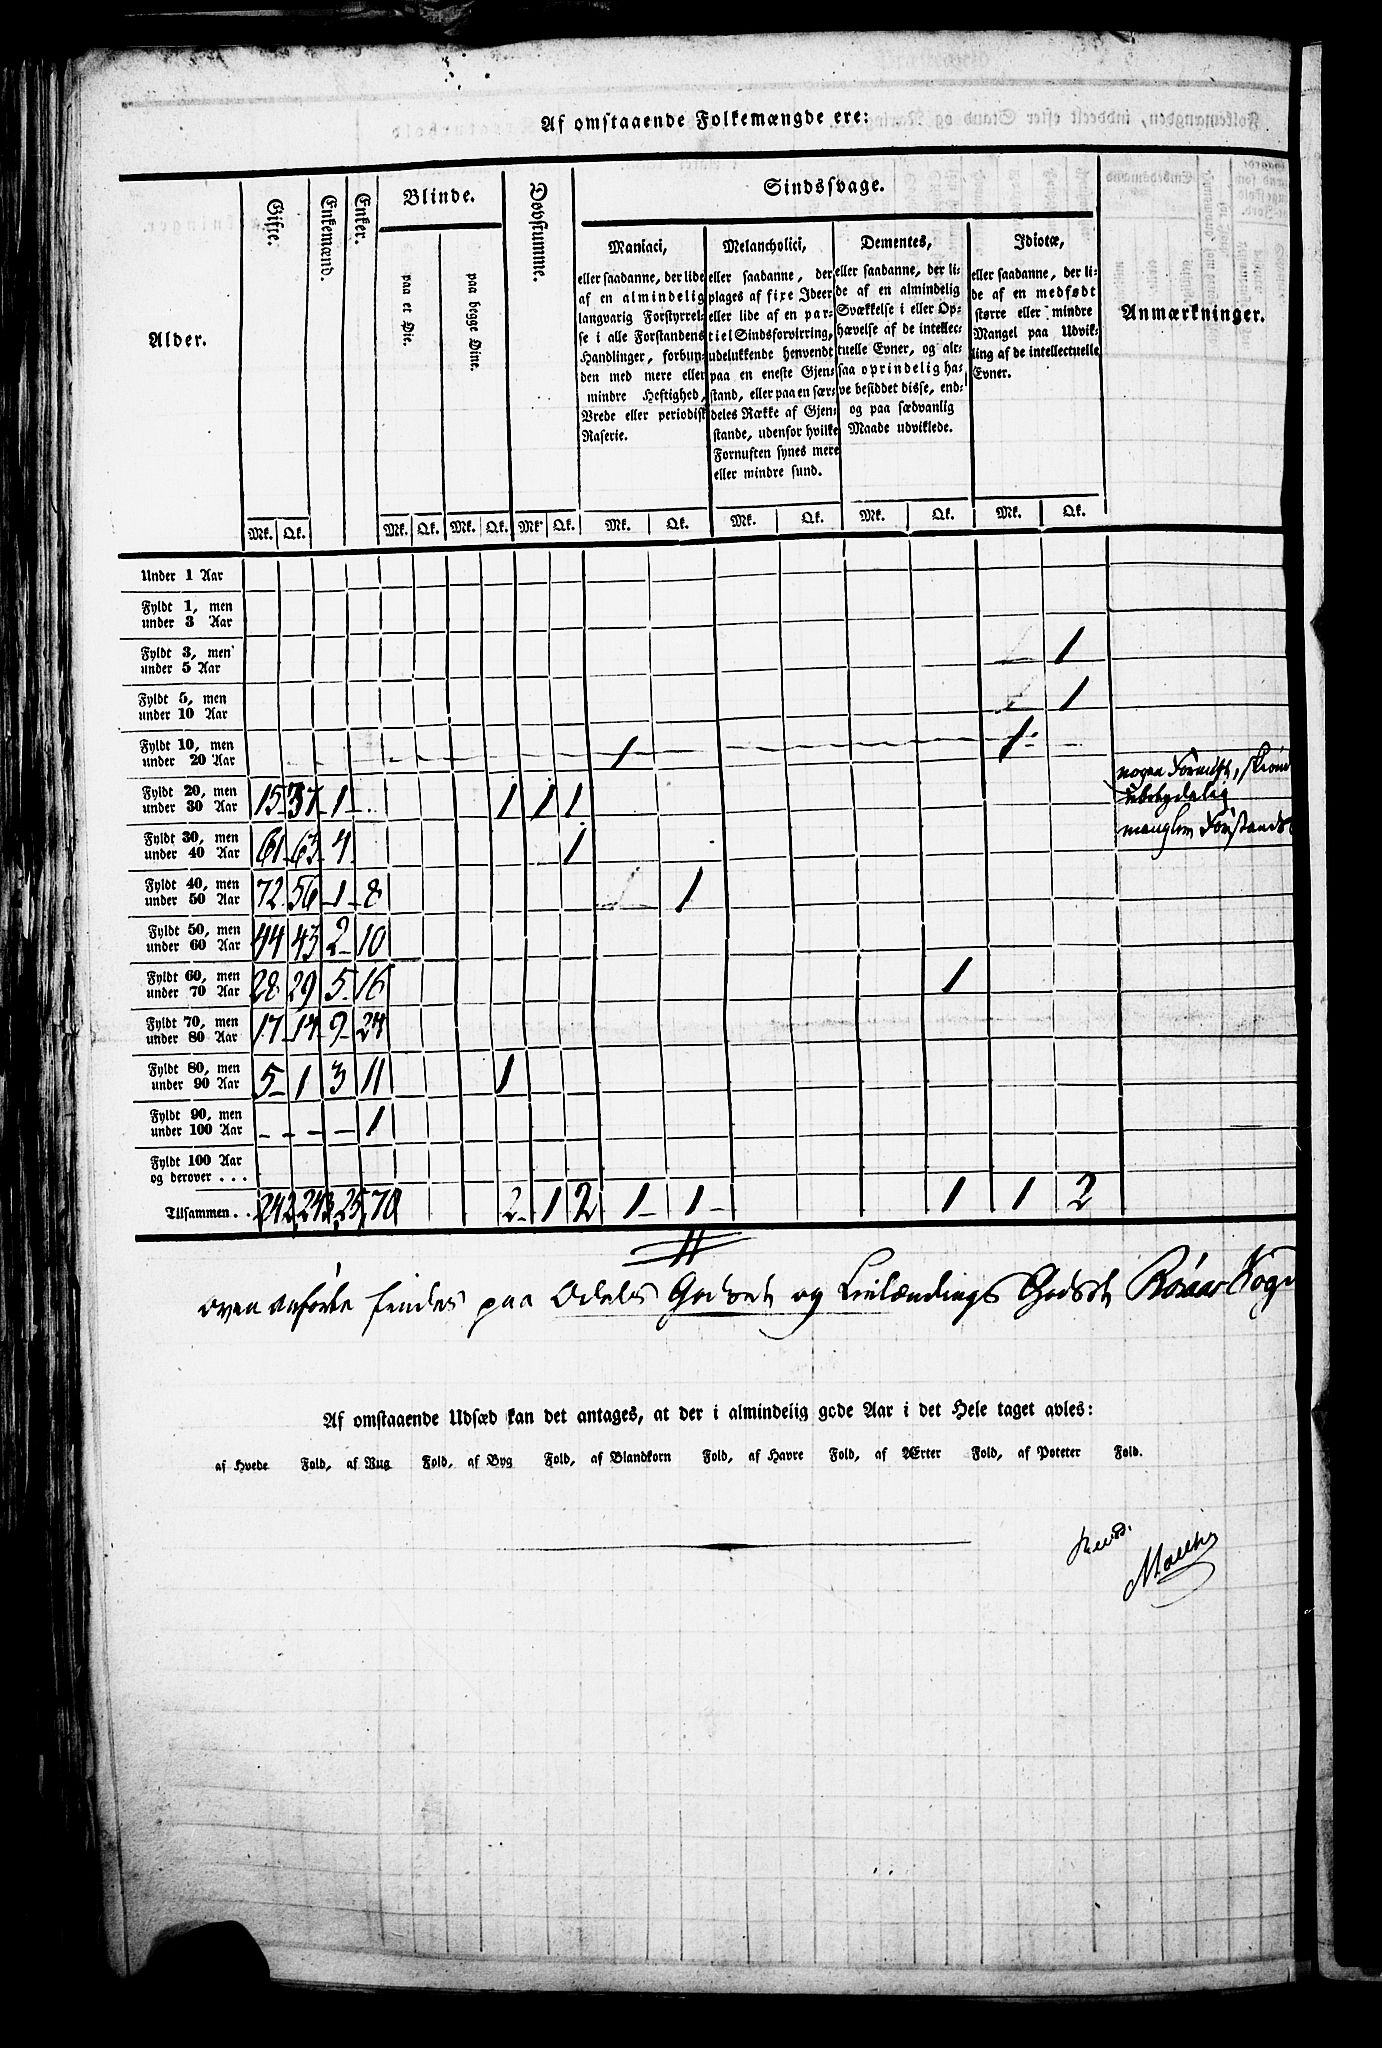 Af omstaaende Folkemængde ere:
Alder.
Gifte.
Enkemænd.
Enker.
Blinde.
paa et Øie.
paa begge Øine.
Døvstumme.
Sindssvage.
Maniaci,
eller saadanne, der lide
af en almindelig
langvarig Forstyrrel-
se i alle Forstandens
Handlinger, forbun-
den med mere eller
mindre Heftighed,
Vrede eller periodisk
Raserie.
Melancholici,
eller saadanne, der
plages af fixe Ideer
eller lide af en par-
tiel Sindsforvirring,
udelukkende henvendt
paa en eneste Gjen-
stand, eller paa en sær-
deles Række af Gjen-
stande, udenfor hvilke
Fornuften synes mere
eller mindre sund.
Dementes,
eller saadanne, der li-
de af en almindelig
Svækkelse i eller Op-
hævelse af de intellec-
tuelle Evner, og alt-
saa oprindelig ha-
ve besiddet disse, end-
og paa sædvanlig
Maade udviklede.
Idiotæ,
eller saadanne, der li-
de af en medfødt
større eller mindre
Mangel paa Udvik-
ling af de intellectuelle
Evner.
Anmærkninger.
Mk. Qk. Mk. Qk. Mk. Qk. Mk. Qk. Mk. Qk. Mk. Qk. Mk. Qk. Mk. Qk.
Under 1 Aar
Fyldt 1, men
under 3 Aar
Fyldt 3, men
under 5 Aar 1
Fyldt 5, men
under 10 Aar 1
Fyldt 10, men
under 20 Aar 1 1
Fyldt 20, men
under 30 Aar 15 37 1 1 1 1
Fyldt 30, men
under 40 Aar 61 63 4 1
mangler Forstands
Fyldt 40, men
under 50 Aar 72 56 1 8 1
Fyldt 50, men
under 60 Aar 44 43 2 10
Fyldt 60, men
under 70 Aar 28 29 5 16 1
Fyldt 70, men
under 80 Aar 17 14 9 24
Fyldt 80, men
under 90 Aar 5 1 3 11 1
Fyldt 90, men
under 100 Aar - - - - 1
Fyldt 100 Aar
og derover . . .
Tilsammen . . 242 243 25 70 2 1 2 1 1 1 1 2
ovenanførte findes paa Odels Godset og Leilændings Godset
Af omstaaende Udsæd kan det antages, at der i almindelig gode Aar i det Hele taget avles:
af Hvede Fold, af Rug Fold, af Byg Fold, af Blandkorn Fold, af Havre Fold, af Ærter Fold, af Poteter Fold.